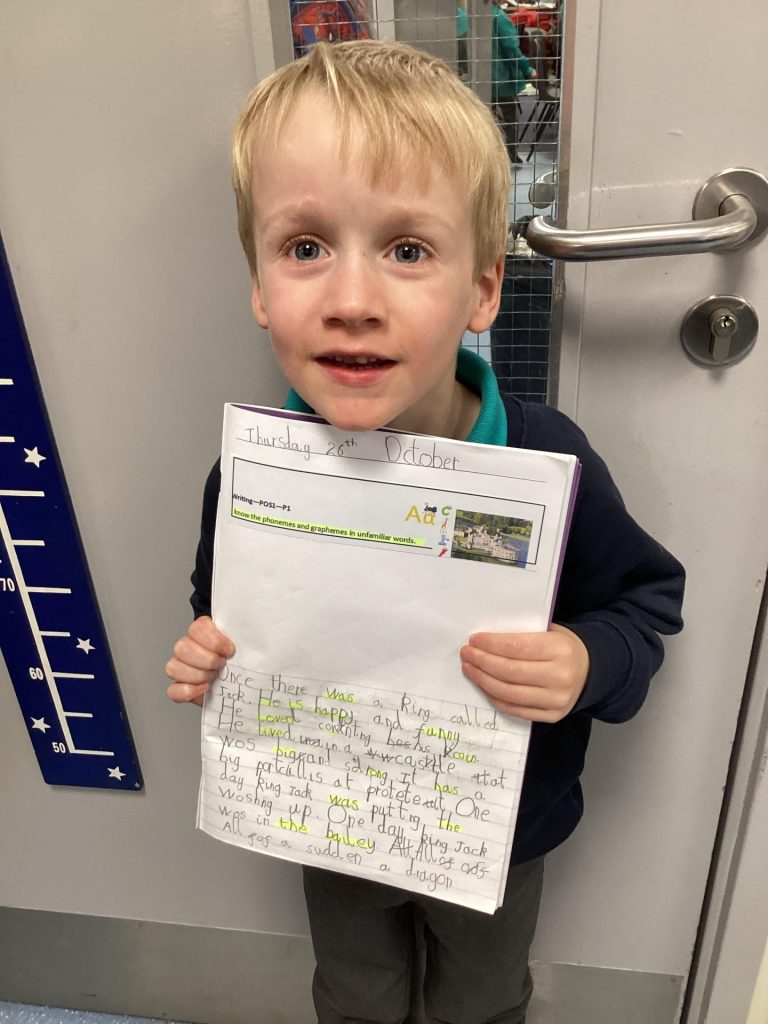 Thursday 26th October
Writing—POS1—P1
Aa
know the phonemes and graphemes in unfamiliar words.
Once there was a king called
Jack. He is happy and funny.
He loved counting his
He lived in a castle that
wos big and strong. It has a
big portcullis at protetexit. One
day king Jack was putting the
woshing up. One day king Jack
wos in the bailey. All of
All of a sudden a dragon
70
60
50